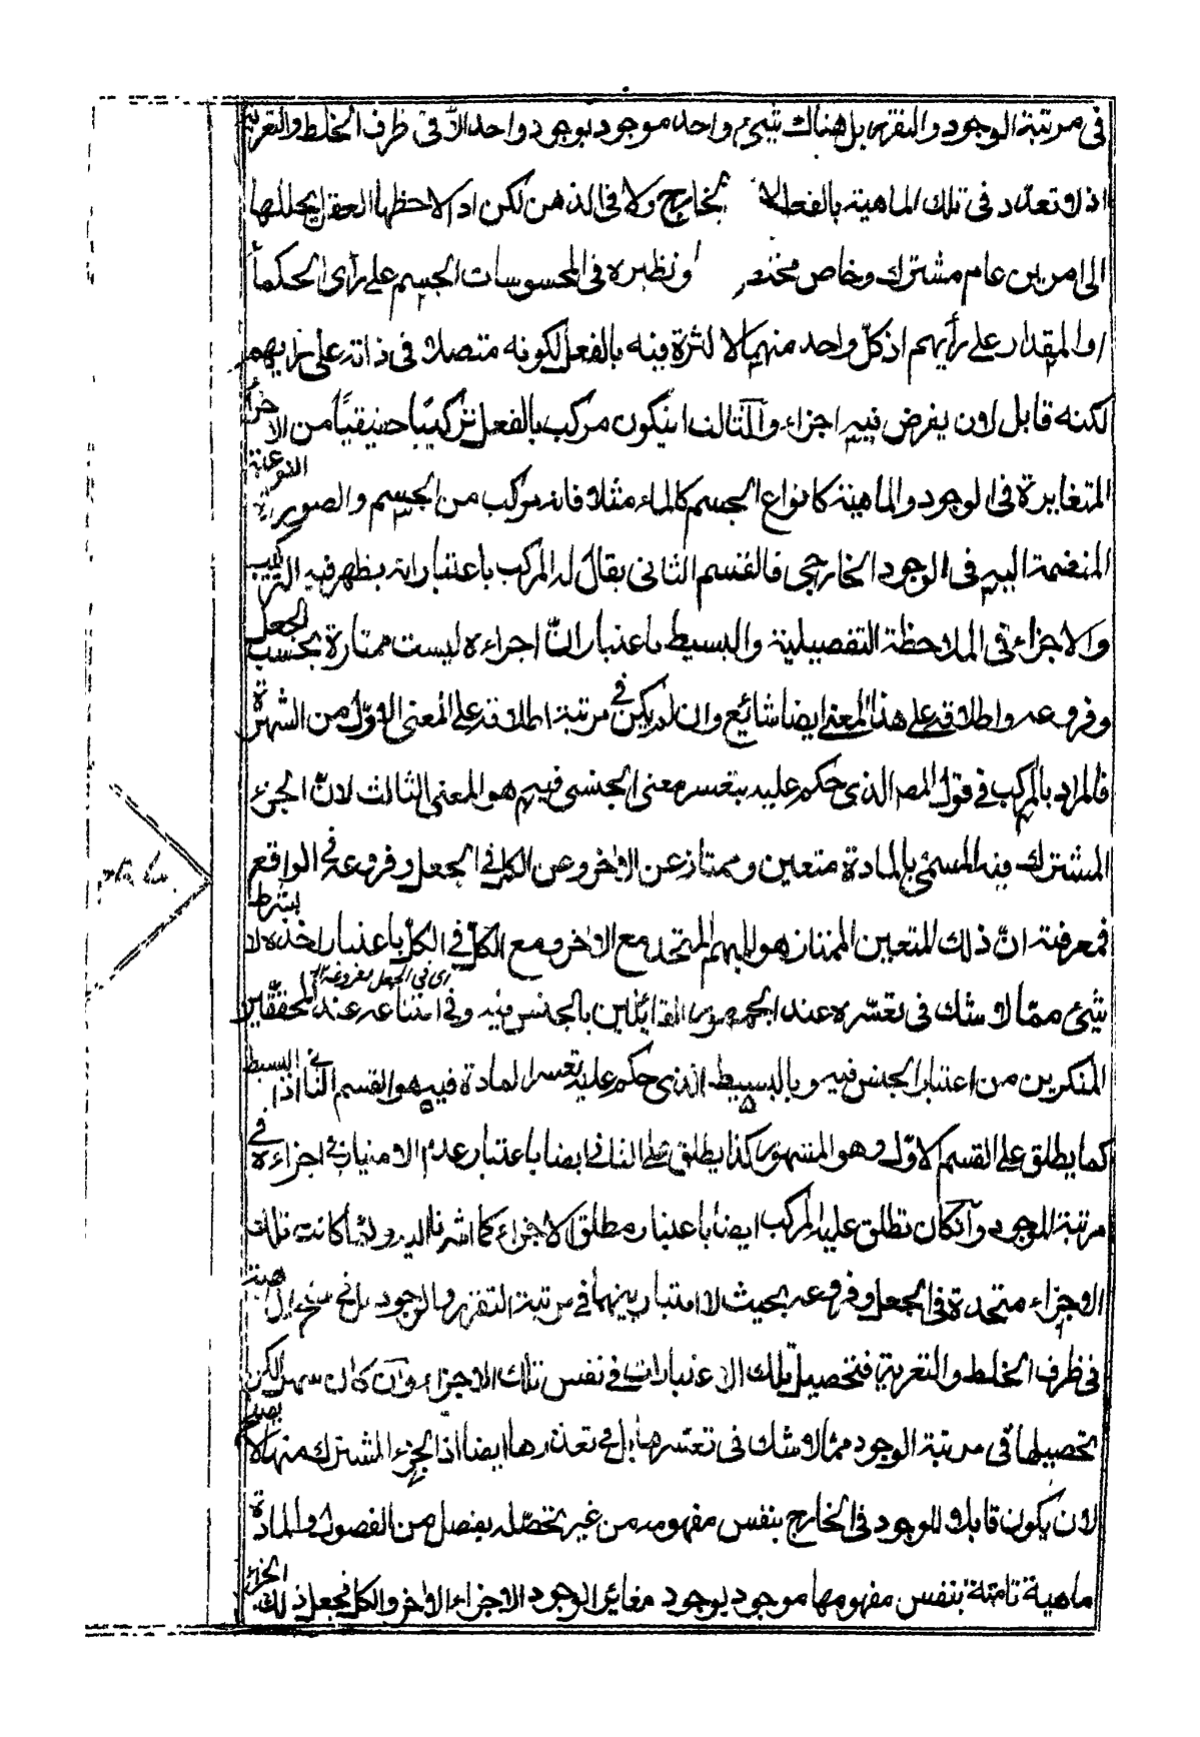 فى مرتبة الوجود والتقرر بل هناك شيئ واحد موجود بوجود واحد الا فى ظرف الخلط والتعرية
اذ لا تعدد فى تلك الماهية بالفعل لا بخارج ولا فى الذهن لكن اذا لاحظها العقل يحللها
الى امرين عام مشترك وخاص مختص ونظيره فى المحسوسات الجسم على رأى الحكماء
والمقدار على رأيهم اذ كل واحد منهما لا كثرة فيه بالفعل لكونه متصلا فى ذاته على رايهم
لكنه قابل لان يفرض فيه اجزاء والثالث ان يكون مركب بالفعل تركيبا حقيقيا من الاجزاء
المتغايرة فى الوجود والماهية كانواع الجسم كالماء مثلا فانه مركب من الجسم والصورة النوعية
المنضمة اليه فى الوجود الخارجى فالقسم الثانى يقال له المركب باعتبار انه يظهر فيه التركيب
والاجزاء فى الملاحظة التفصيلية والبسيط باعتبار ان اجزاءه ليست ممتازة بحسب الجعل
وفروعه واطلاقه على هذا المعنى ايضا شائع وان لم يكن فى مرتبة اطلاقه على المعنى الاول من الشهرة
فالمراد بالمركب فى قول المصـ الذى حكم عليه بتعسر معنى الجنسى فيه هو المعنى الثالث لان الجزء
المشترك فيه المسمى بالمادة متعين وممتاز عن الاخر وعن الكل فى الجعل وفروعه فى الواقع
فمعرفة ان ذلك المتعين الممتاز هو المبهم المتحد مع الاخر ومع الكل فى الكل باعتبار اخذه لا بشرط
شيئ مما لا شك فى تعسره عند الجمهور القائلين بالجنس فيه وفى امتناعه عند المحققين
اى فى الجعل وفروعه
المنكرين من اعتبار الجنس فيه وبالبسيط الذى حكم عليه بتعسر المادة فيه هو القسم الثانى اذ البسيط
كما يطلق على القسم الاول وهو المشهور كذا يطلق على الثانى ايضا باعتبار عدم الامتياز فى اجزاءه فى
مرتبة الوجود وان كان تطلق عليه المركب ايضا باعتبار مطلق الاجزاء كما اشرنا اليه ولما كانت تلك
الاجزاء متحدة فى الجعل وفروعه بحيث لا امتياز بينهما فى مرتبة التقرر والوجود بل فى
فى ظرف الخلط والتعرية فتحصيل تلك الاعتبارات فى نفس تلك الاجزاء وان كان سهلا لكن
تحصيلها فى مرتبة الوجود مما لا شك فى تعسرها بل فى تعذرها ايضا اذ الجزء المشترك منها لا يصلح
لان يكون قابلا للوجود فى الخارج بنفس مفهومه من غير تحصله بفصل من الفصول والمادة
ماهية تامة بنفس مفهومها موجود بوجود مغاير لوجود الاجزاء الاخر والكل فجعل ذلك الجزء